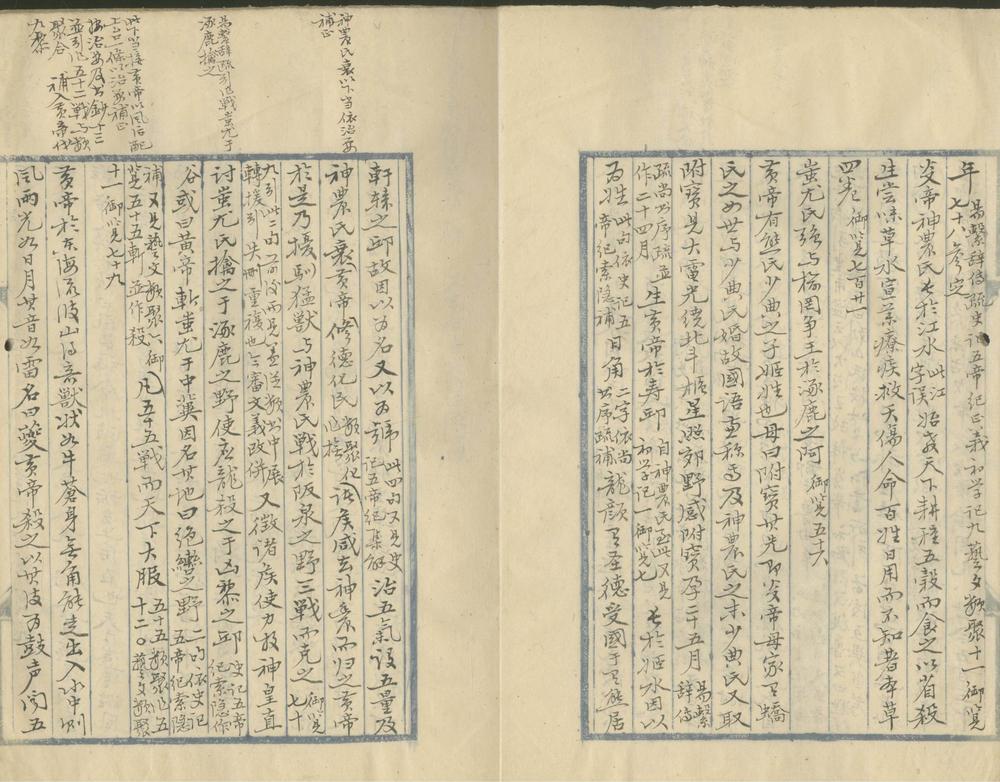 年 易繫辭傳疏 史記五帝紀正義 初学記九 藝文類聚十一 御覽七十八參定
炎帝神農氏長於江水 此江字誤 始教天下耕種五穀而食之以省殺
生嘗味草木宣薬療疾救夭傷人命百姓日用而不知著本草
四卷 御覽七百廿一
蚩尤氏强与榆罔争王於涿鹿之阿 御覽五十六
黃帝有熊氏少典之子姬姓也母曰附寶其先即炎帝母家有蟜
氏之女世与少典氏婚故國语並称焉及神農氏之末少典氏又取
附寶見大電光绕北斗樞星照郊野感附寶孕二十五月 易繫辭傳
疏尚书序疏並作二十四月 生黃帝於寿邱 自神農氏至此又見初学記一御覽七 長於姬水因以
为姓 此句依史记五帝纪索隐補 日角 二字依尚书序疏補 龍顔有圣德受國于有熊居
軒轅之邱故因以为名又以为號 此四句又見史记五帝纪集解 治五氣設五量及
神農氏衰黃帝修德化民 類聚化作撫 诸侯咸去神農而归之黃帝
於是乃擾馴猛獸与神農氏戰於阪泉之野三戰而克之 御覽七十
九引此二句
轉援引失删重複也今審文義改併 又徵诸侯使力牧神皇直
讨蚩尤氏擒之于涿鹿之野使应龍殺之于凶黎之邱 史记五帝纪索隐作
谷或曰黃帝斬蚩尤于中冀因名其地曰绝轡之野 二句依史记五帝纪索隐
補又見藝文類聚六御覽五十五斬並作殺 凡五十五戰而天下大服 五十五類聚作五十二〇藝文類聚
十一御览七十九
黃帝於东海流波山得奇獸状如牛蒼身無角能走出入水中则
風雨光如日月其音如雷名曰夔黃帝殺之以其皮为鼓声闻五
神農氏衰以下当依治要補正
易繫辭疏引作戰蚩尤于涿鹿擒之
此下当接黃帝以風后配上台一條以治要補正
按治要及书鈔十三並引作五十二戰与類聚合
補入黃帝代